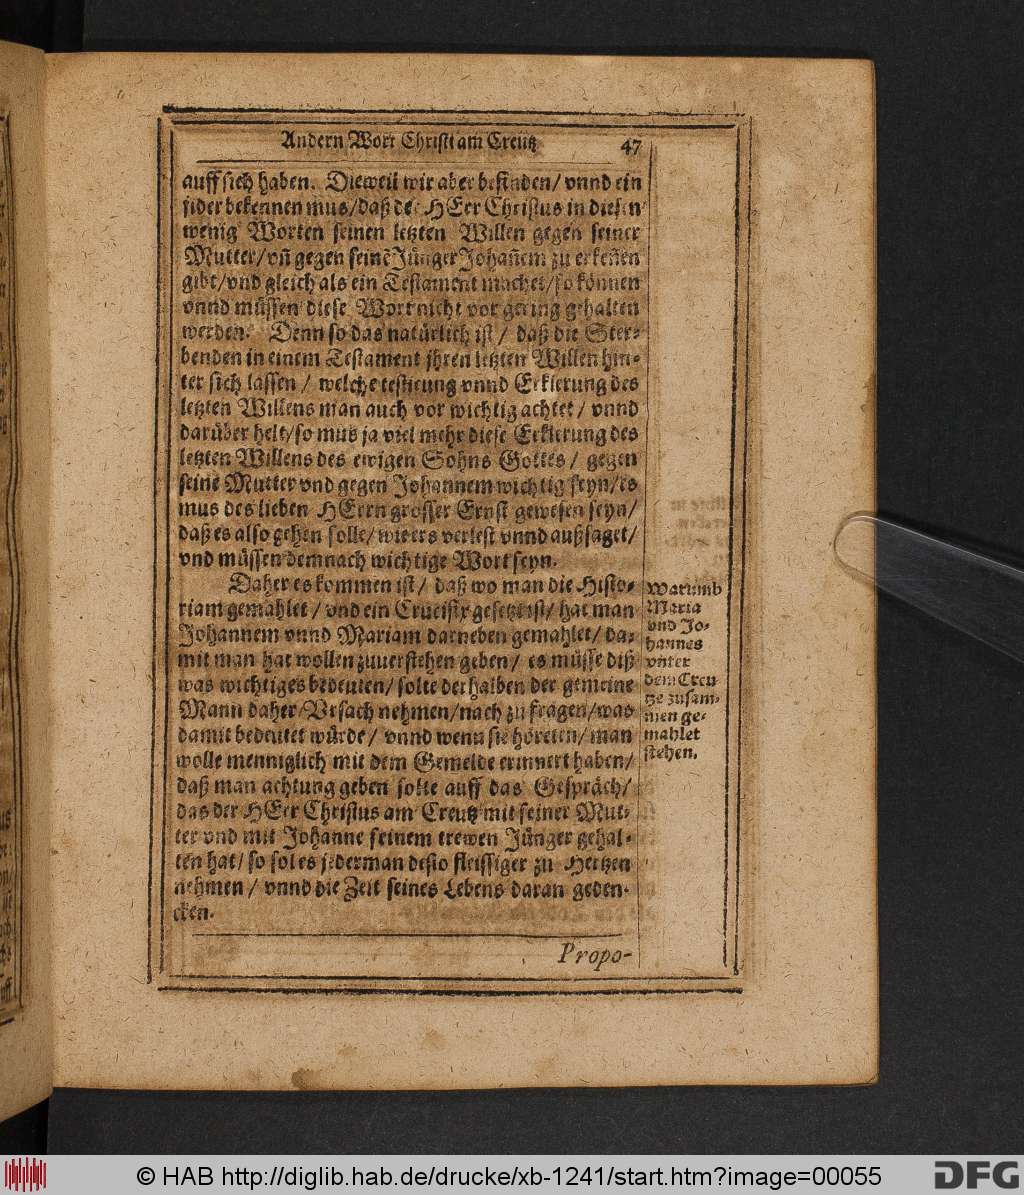 Andern Wort Christi am Creutz 47
auff sich haben. Dieweil wir aber befinden/ vnnd ein
jider bekennen mus/ daß der HErr Christus in diesen
wenig Worten seinen letzten Willen gegen seiner
Mutter/ vñ gegen seinẽ Jünger Johañem zu erkeñen
gibt/ vnd gleich als ein Testament machet/ so können
vnnd müssen diese Wort nicht vor gering gehalten
werden. Denn so das natürlich ist/ daß die Ster-
benden in einem Testament jhren letzten Willen hin-
ter sich lassen/ welche testirung vnnd Erklerung des
letzten Willens man auch vor wichtig achtet/ vnnd
darüber helt/ so mus ja viel mehr diese Erklerung des
letzten Willens des ewigen Sohns Gottes/ gegen
seine Mutter vnd gegen Johannem wichtig seyn/ es
mus des lieben HErrn grosser Ernst gewesen seyn/
daß es also gehen solle/ wie ers verlest vnnd außsaget/
vnd müssen demnach wichtige Wort seyn.
Daher es kommen ist/ daß wo man die Histo-
riam gemahlet/ vnd ein Crucifix gesetzt ist/ hat man
Johannem vnnd Mariam darneben gemahlet/ da-
mit man hat wollen zuuerstehen geben/ es müsse diß
was wichtiges bedeuten/ solte derhalben der gemeine
Mann daher Vrsach nehmen/ nach zu fragen/ was
damit bedeutet würde/ vnnd wenn sie höreten/ man
wolle menniglich mit dem Gemelde erinnert haben/
daß man achtung geben solte auff das Gespräch/
das der HErr Christus am Creutz mit seiner Mut-
ter vnd mit Johanne seinem trewen Jünger gehal-
ten hat/ so sol es jederman desto fleissiger zu Hertzen
nehmen/ vnnd die Zeit seines Lebens daran geden-
cken.
Warumb
Maria
vnd Jo-
hannes
vnter
dem Creu
tze zusam-
men ge-
mahlet
stehen.
Propo-
© HAB http://diglib.hab.de/drucke/xb-1241/start.htm?image=00055
DFG